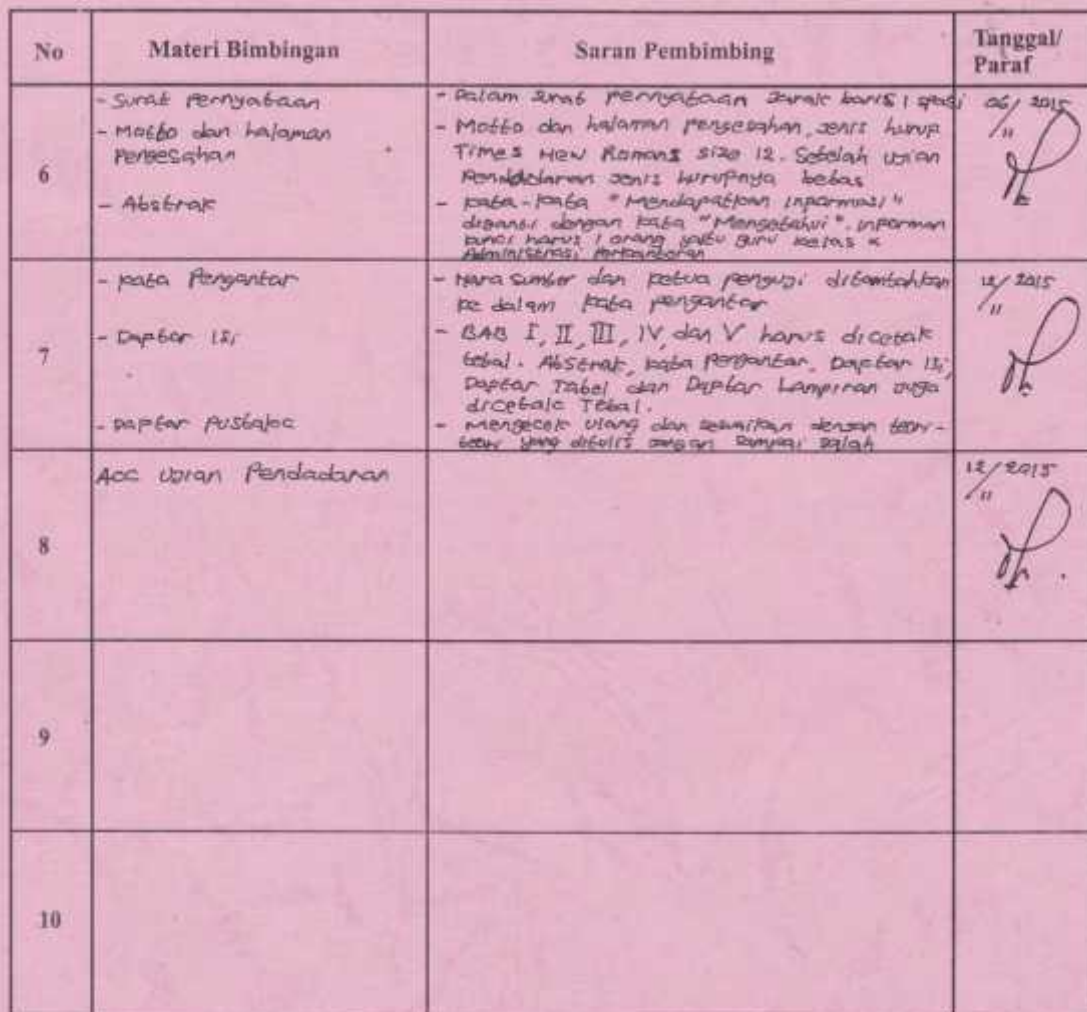 No
Materi Bimbingan
Saran Pembimbing
Tanggal/
Paraf
6
- Surat Pernyataan
- Motto dan halaman
Pengesahan
- Abstrak
- Dalam surat pernyataan Jarak baris 1 spasi
- Motto dan halaman pengesahan, jenis hurup
Times New Romans size 12. Setelah ujian
Pendadaran jenis hurupnya bebas
- kata-kata "Mendapatkan inpormasi"
diganti dengan kata "Mengetahui". inporman
kunci harus 1 orang yaitu guru kelas x
Administrasi Perkantoran
06/ 2015
11
7
- kata Pengantar
- Daptar isi
- Daptar Pustaka
- Nara sumber dan ketua penguji ditambahkan
ke dalam kata pengantar
- BAB I, II, III, IV, dan V harus dicetak
tebal. Abstrak, kata Pengantar, Daptar Isi,
Daptar Tabel dan Daptar Lampiran juga
dicetak Tebal.
- mengecek ulang dan sesuaikan dengan teori-
teori yang ditulis jangan sampai salah
12/ 2015
11
8
Acc Ujian Pendadaran
12/ 2015
11
9
10